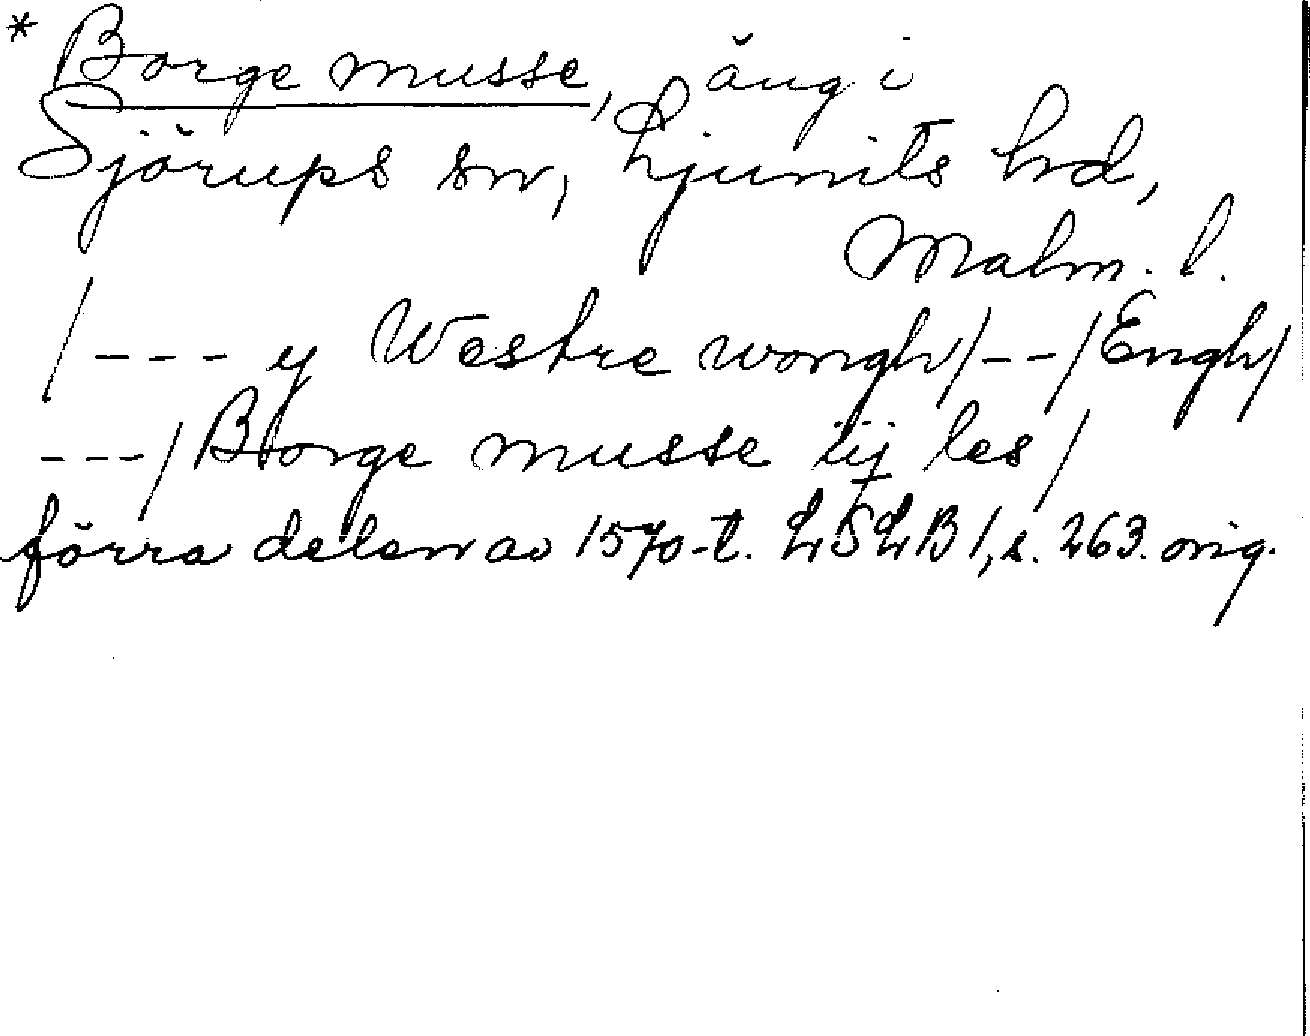 * Borge musse, äng i
Sjörups sn, Ljunits hd,
Malm. l.
/--- y Westre wongh/--/Engh/
---/Borge musse iij les/
förra delen av 1570-t. LSLB 1, s. 263. orig.